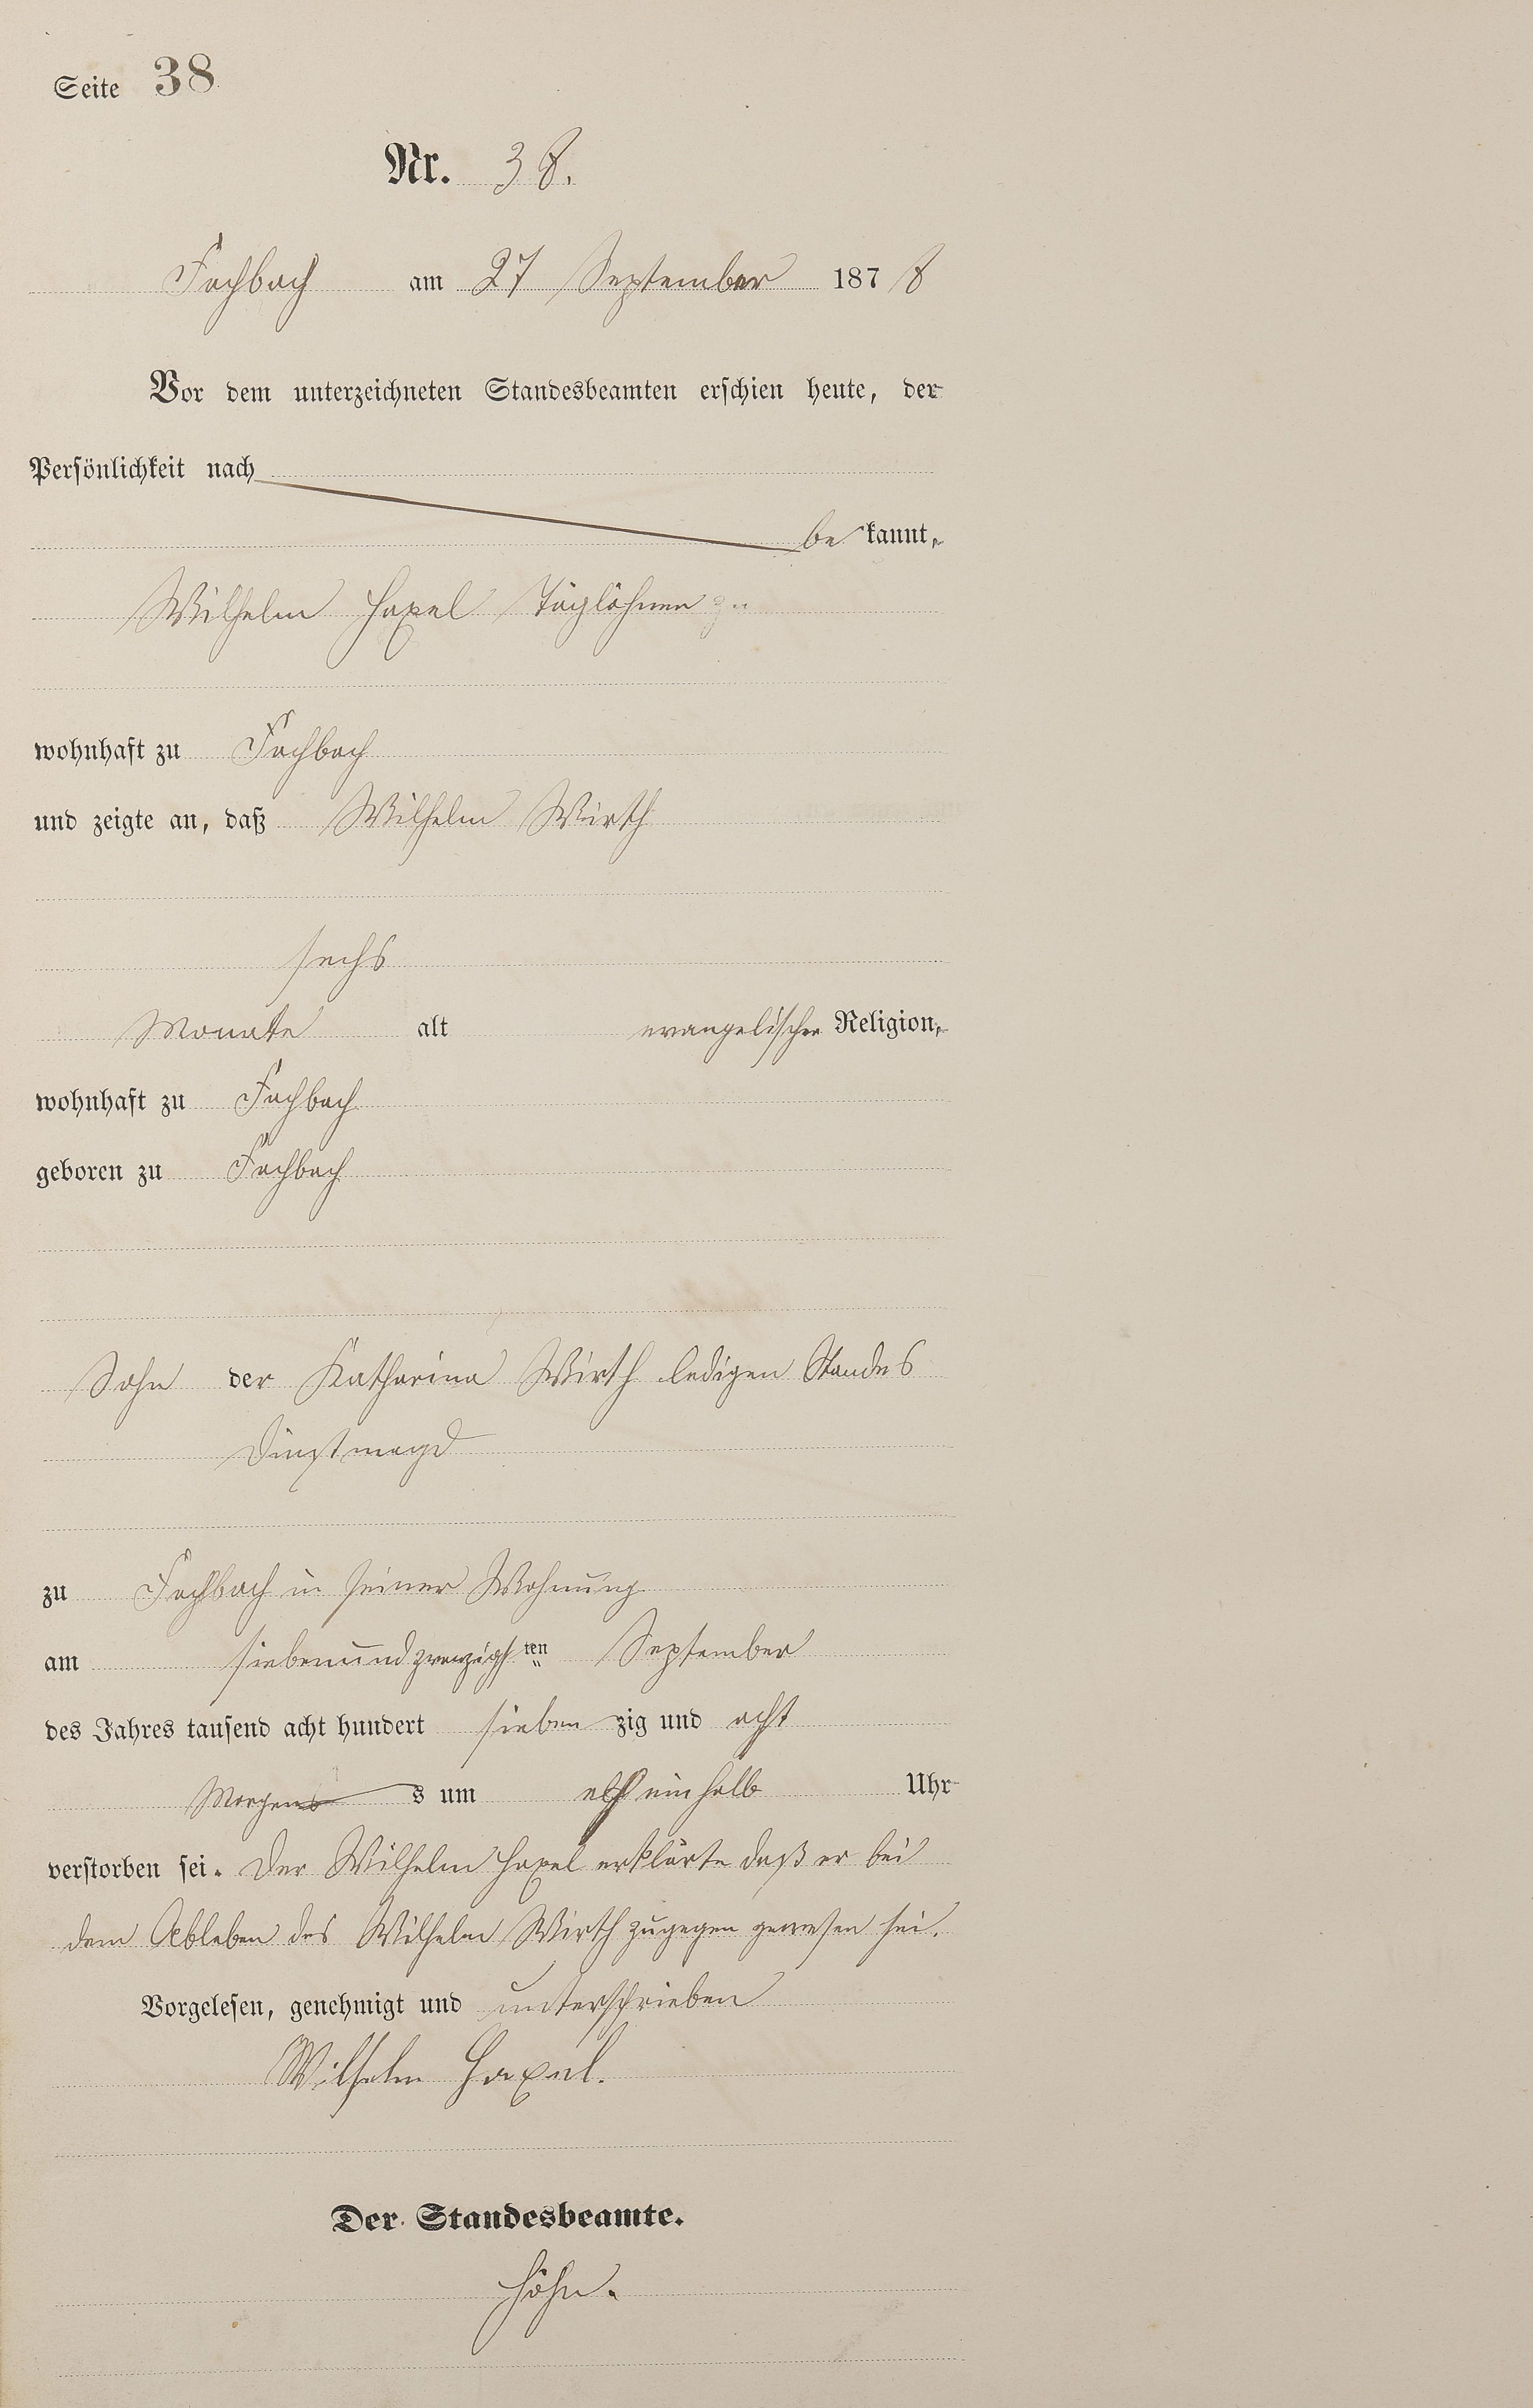 Seite 38
Nr. 38.
Fachbach am 27 September 1878
Vor dem unterzeichneten Standesbeamten erschien heute, der
Persönlichkeit nach
be kannt,
Wilhelm Haxel Taglöhner zu
wohnhaft zu Fachbach
und zeigte an, daß Wilhelm Wirth
sechs
Monate alt evangelischer Religion,
wohnhaft zu Fachbach
geboren zu Fachbach
Sohn der Katharina Wirth ledigen Standes
Dinstmagd
zu Fachbach in seiner Wohnung
am siebenundzwanzigsten September
des Jahres tausend acht hundert sieben zig und acht
Morgens um elf einhalb Uhr
verstorben sei. Der Wilhelm Haxel erklärte daß er bei
dem Ableben des Wilhelm Wirth zugegen gewesen sei.
Vorgelesen, genehmigt und unterschrieben
Wilhelm Haxel.
Der Standesbeamte.
Höhn.